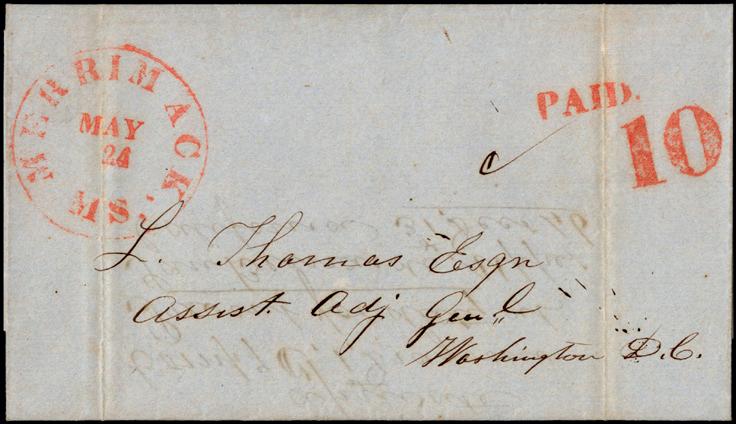 MERRIMACK.
MAY
24
MS.
PAID.
10
L. Thomas Esqr
Assist. Adj Genl
Washington D.C.